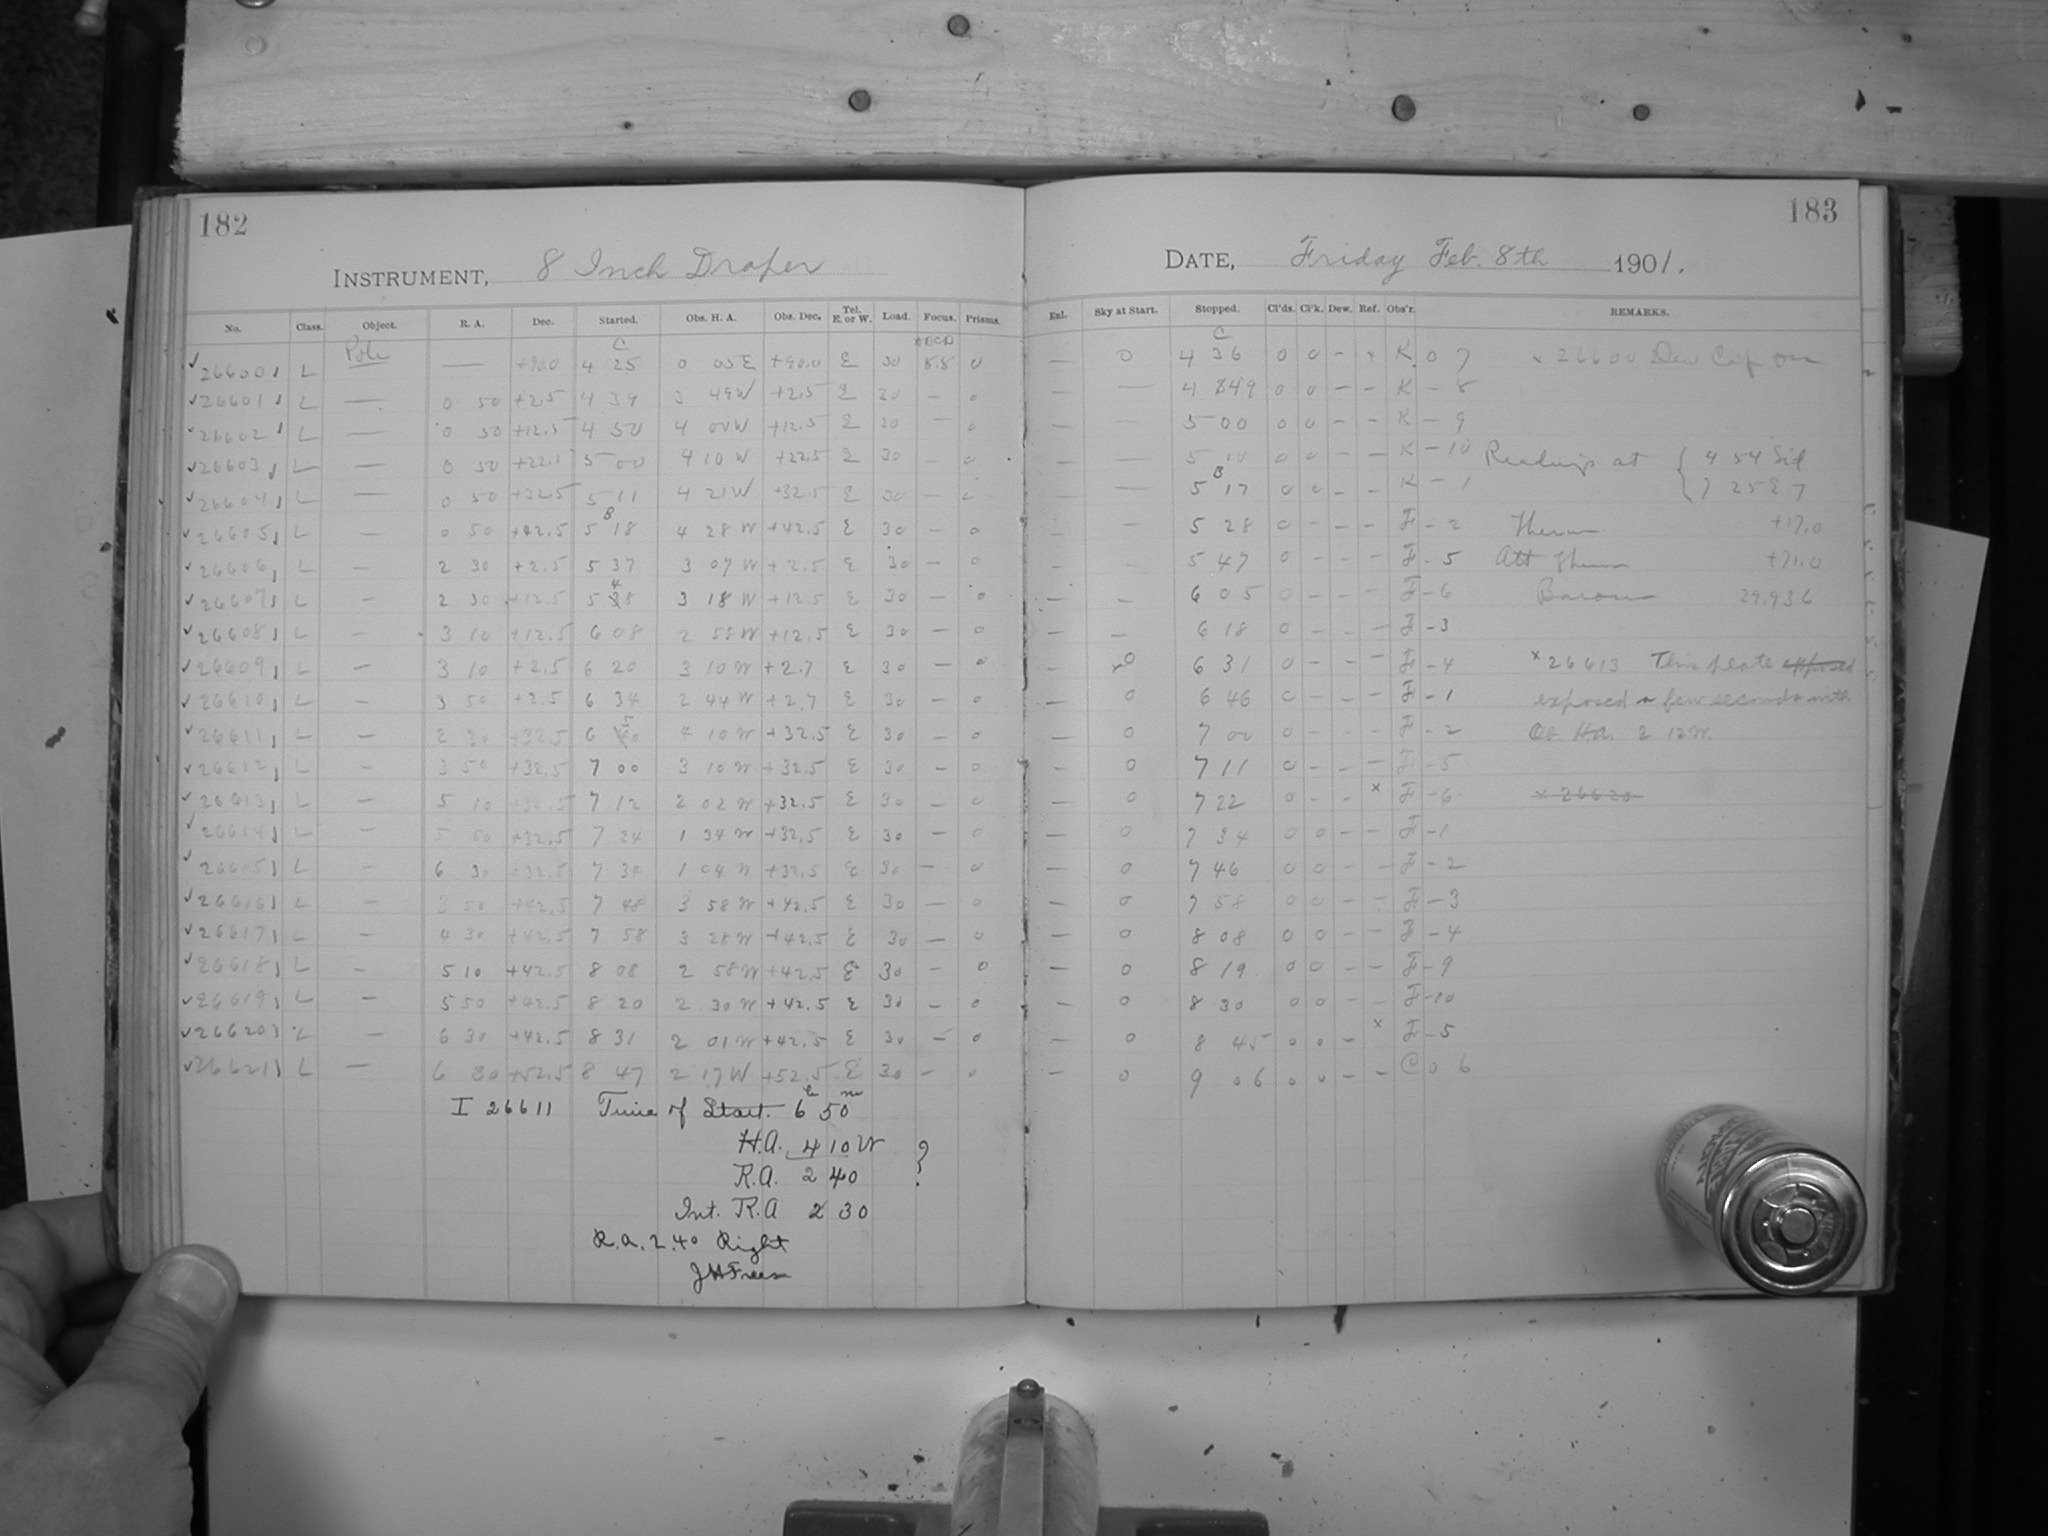 182
INSTRUMENT, 8 Inch Draper
No. Class. Object. R. A. Dec. Started. Obs. H. A. Obs. Dec. Tel. E. or W. Load. Focus. Prisms.
C
26600 L Pole — +90.0 4 25 0 05 E +90.0 E 30 8.8 0
26601 L — 0 50 +2.5 4 39 3 49 W +2.5 E 30 – 0
26602 L — 0 50 +12.5 4 50 4 00 W +12.5 E 30 – 0
26603 L — 0 50 5 00 4 10 W +22.5 E 30 – 0
26604 L — 0 50 +32.5 5 11 4 21 W +32.5 E 30 – 0
B
26605 L — 0 50 +42.5 5 18 4 28 W +42.5 E 30 – 0
26606 L — 2 30 +2.5 5 37 3 07 W +2.5 E 30 – 0
26607 L – 2 30 +12.5 5 48 3 18 W +12.5 E 30 – 0
26608 L – 3 10 +12.5 6 08 2 58 W +12.5 E 30 – 0
26609 L – 3 10 +2.5 6 20 3 10 W +2.7 E 30 – 0
26610 L – 3 50 +2.5 6 34 2 44 W +2.7 E 30 – 0
26611 L – 2 30 +32.5 6 50 4 10 W +32.5 E 30 – 0
26612 L – 3 50 +32.5 7 00 3 10 W +32.5 E 30 – 0
26613 L – 5 10 +32.5 7 12 2 02 W +32.5 E 30 – 0
26614 L – 5 50 +32.5 7 24 1 34 W +32.5 E 30 – 0
26615 L – 6 30 +32.5 7 34 1 04 W +32.5 E 30 – 0
26616 L – 3 50 +42.5 7 48 3 58 W +42.5 E 30 – 0
26617 L – 4 30 +42.5 7 58 3 28 W +42.5 E 30 – 0
26618 L – 5 10 +42.5 8 08 2 58 W +42.5 E 30 – 0
26619 L – 5 50 +42.5 8 20 2 30 W +42.5 E 30 – 0
26620 L – 6 30 +42.5 8 31 2 01 W +42.5 E 30 – 0
26621 L – 6 30 +52.5 8 47 2 17 W +52.5 E 30 – 0
I 26611 Time of Start. 6h 50m
H.A. 4 10 W
R.A. 2 40 ?
Int. R.A 2 30
R.A. 2.40 Right
183
DATE, Friday Feb. 8th 1901.
Enl. Sky at Start. Stopped. Cl'ds. Cl'k. Dew. Ref. Obs'r. REMARKS.
C
— 0 4 36 0 0 – x K 0 7 x 26600 Dew Cap on
— — 4 49 0 0 – – K – 8
— — 5 00 0 0 – – K – 9
— — 5 10 0 0 – – K – 10 Readings at { 4 54 Sid
B
— — 5 17 0 0 – – K – 1
— — 5 28 0 – – – F – 2 Therm +17.0
— — 5 47 0 – – – F – 5 Att Therm +71.0
— — 6 05 0 – – – F – 6 Barom 29.936
— — 6 18 0 – – – F – 3
— 0 6 31 0 – – – F – 4 x 26613 This plate exposed
— 0 6 46 0 – – – F – 1 exposed a few seconds with
— 0 7 00 0 – – – F – 2 Ob. H.A. 2 12 W.
— 0 7 11 0 – – – F – 5
— 0 7 22 0 – – x F – 6 x 26620
— 0 7 34 0 0 – – F – 1
— 0 7 46 0 0 – – F – 2
— 0 7 58 0 0 – – F – 3
— 0 8 08 0 0 – – F – 4
— 0 8 19 0 0 – – F – 9
— 0 8 30 0 0 – – F – 10
— 0 8 45 0 0 – x F – 5
— 0 9 06 0 0 – – C 0 6